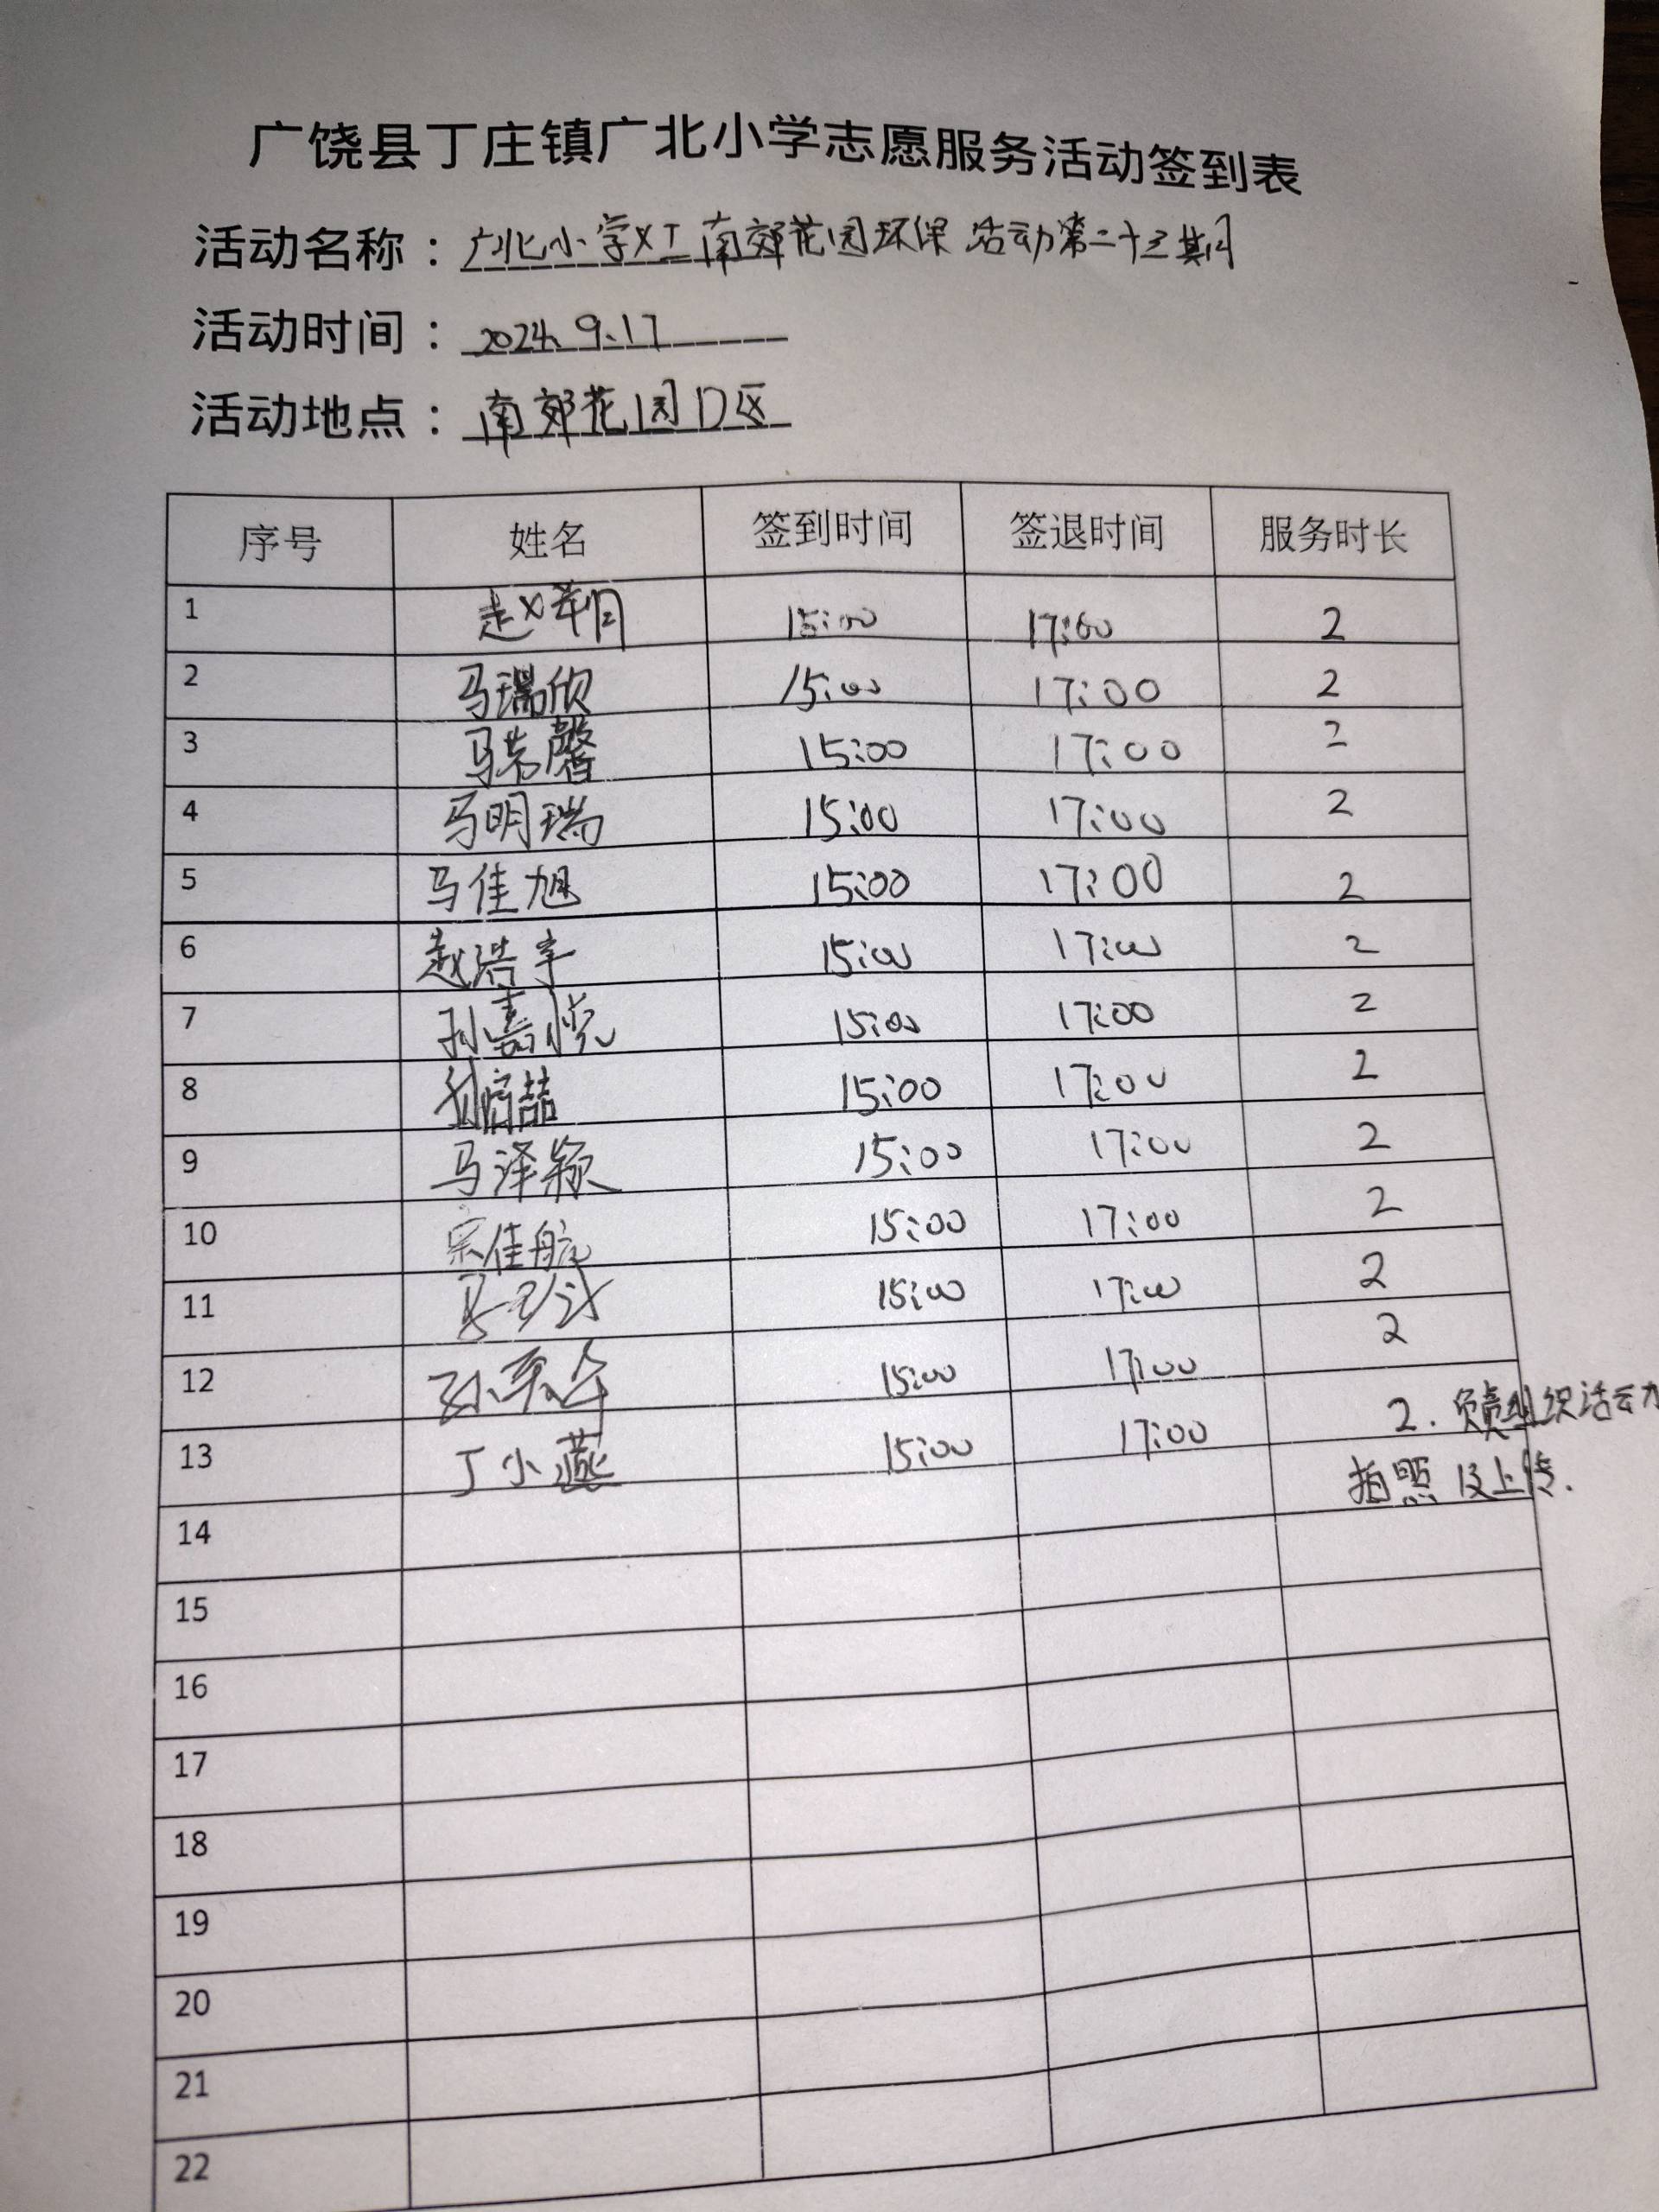 广饶县丁庄镇广北小学志愿服务活动签到表
活动名称：广北小学义工南郊花园环保活动第二十三期
活动时间：2024.9.17
活动地点：南郊花园D区
序号 姓名 签到时间 签退时间 服务时长
1 赵 15:00 17:00 2
2 马瑞欣 15:00 17:00 2
3 马若馨 15:00 17:00 2
4 马明瑞 15:00 17:00 2
5 马佳旭 15:00 17:00 2
6 赵浩宇 15:00 17:00 2
7 孙嘉悦 15:00 17:00 2
8 刘 喆 15:00 17:00 2
9 马泽颖 15:00 17:00 2
10 宗佳航 15:00 17:00 2
11 15:00 17:00 2
12 孙 15:00 17:00 2
13 丁小燕 15:00 17:00 2. 负责组织活动
拍照及上传.
14
15
16
17
18
19
20
21
22